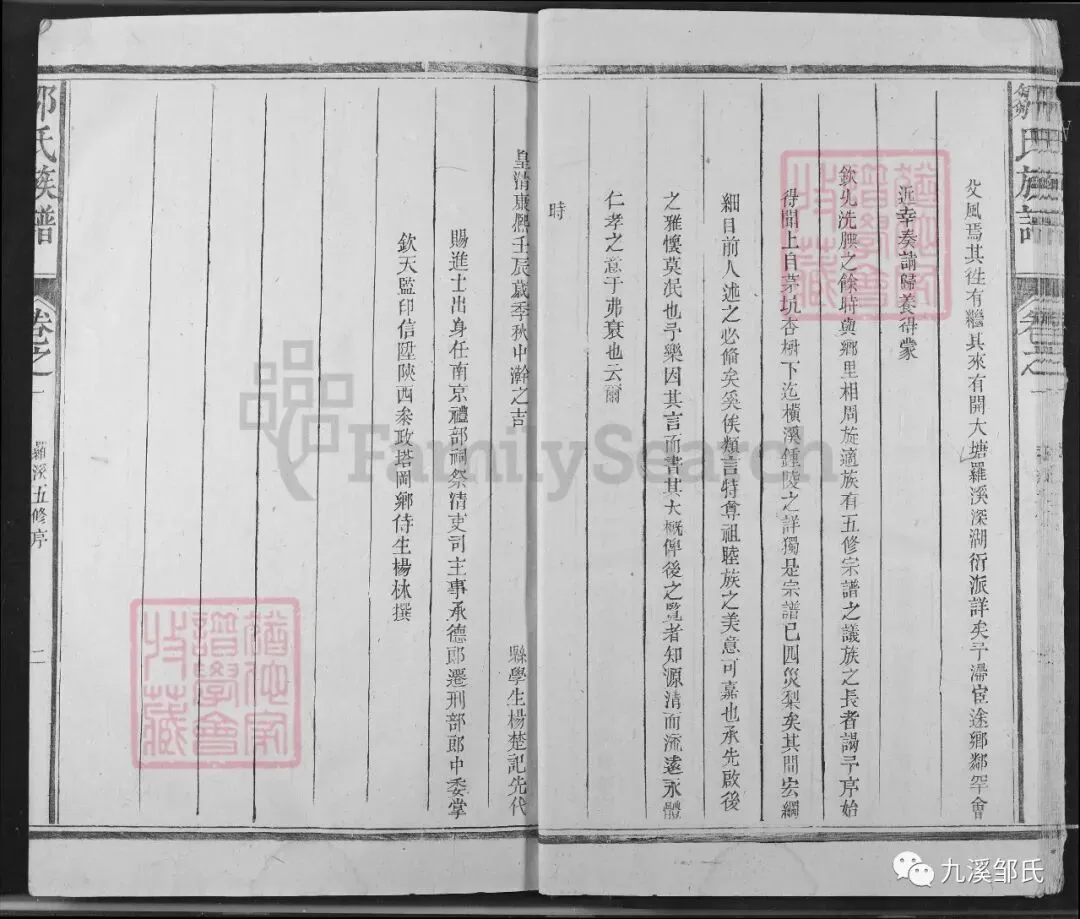 鄒氏族譜
卷之一
父風焉其徃有繼其來有開大塘羅溪深湖衍派詳矣予滯宦途鄉鄰罕會
近幸奏請歸養得蒙
欽允洗腆之餘時與鄉里相周旋適族有五修宗譜之議族之長者謁予序始
得聞上自茅坑杏樹下迄橫溪鍾陵之詳獨是宗譜已四災梨矣其間宏綱
細目前人述之必備矣奚俟類言特尊祖睦族之美意可嘉也承先啟後
之雅懷莫泯也予樂因其言而書其大概俾後之覽者知源清而流遠永體
仁孝之意于弗衰也云爾
時
皇清康熙壬辰歲季秋中澣之吉
縣學生楊楚記先代
賜進士出身任南京禮部祠祭清吏司主事承德郎遷刑部郎中委掌
欽天監印信陞陝西叅政塔岡鄉侍生楊林撰
鄒氏族譜
卷之一
羅溪五修序
二
FamilySearch
九溪邹氏